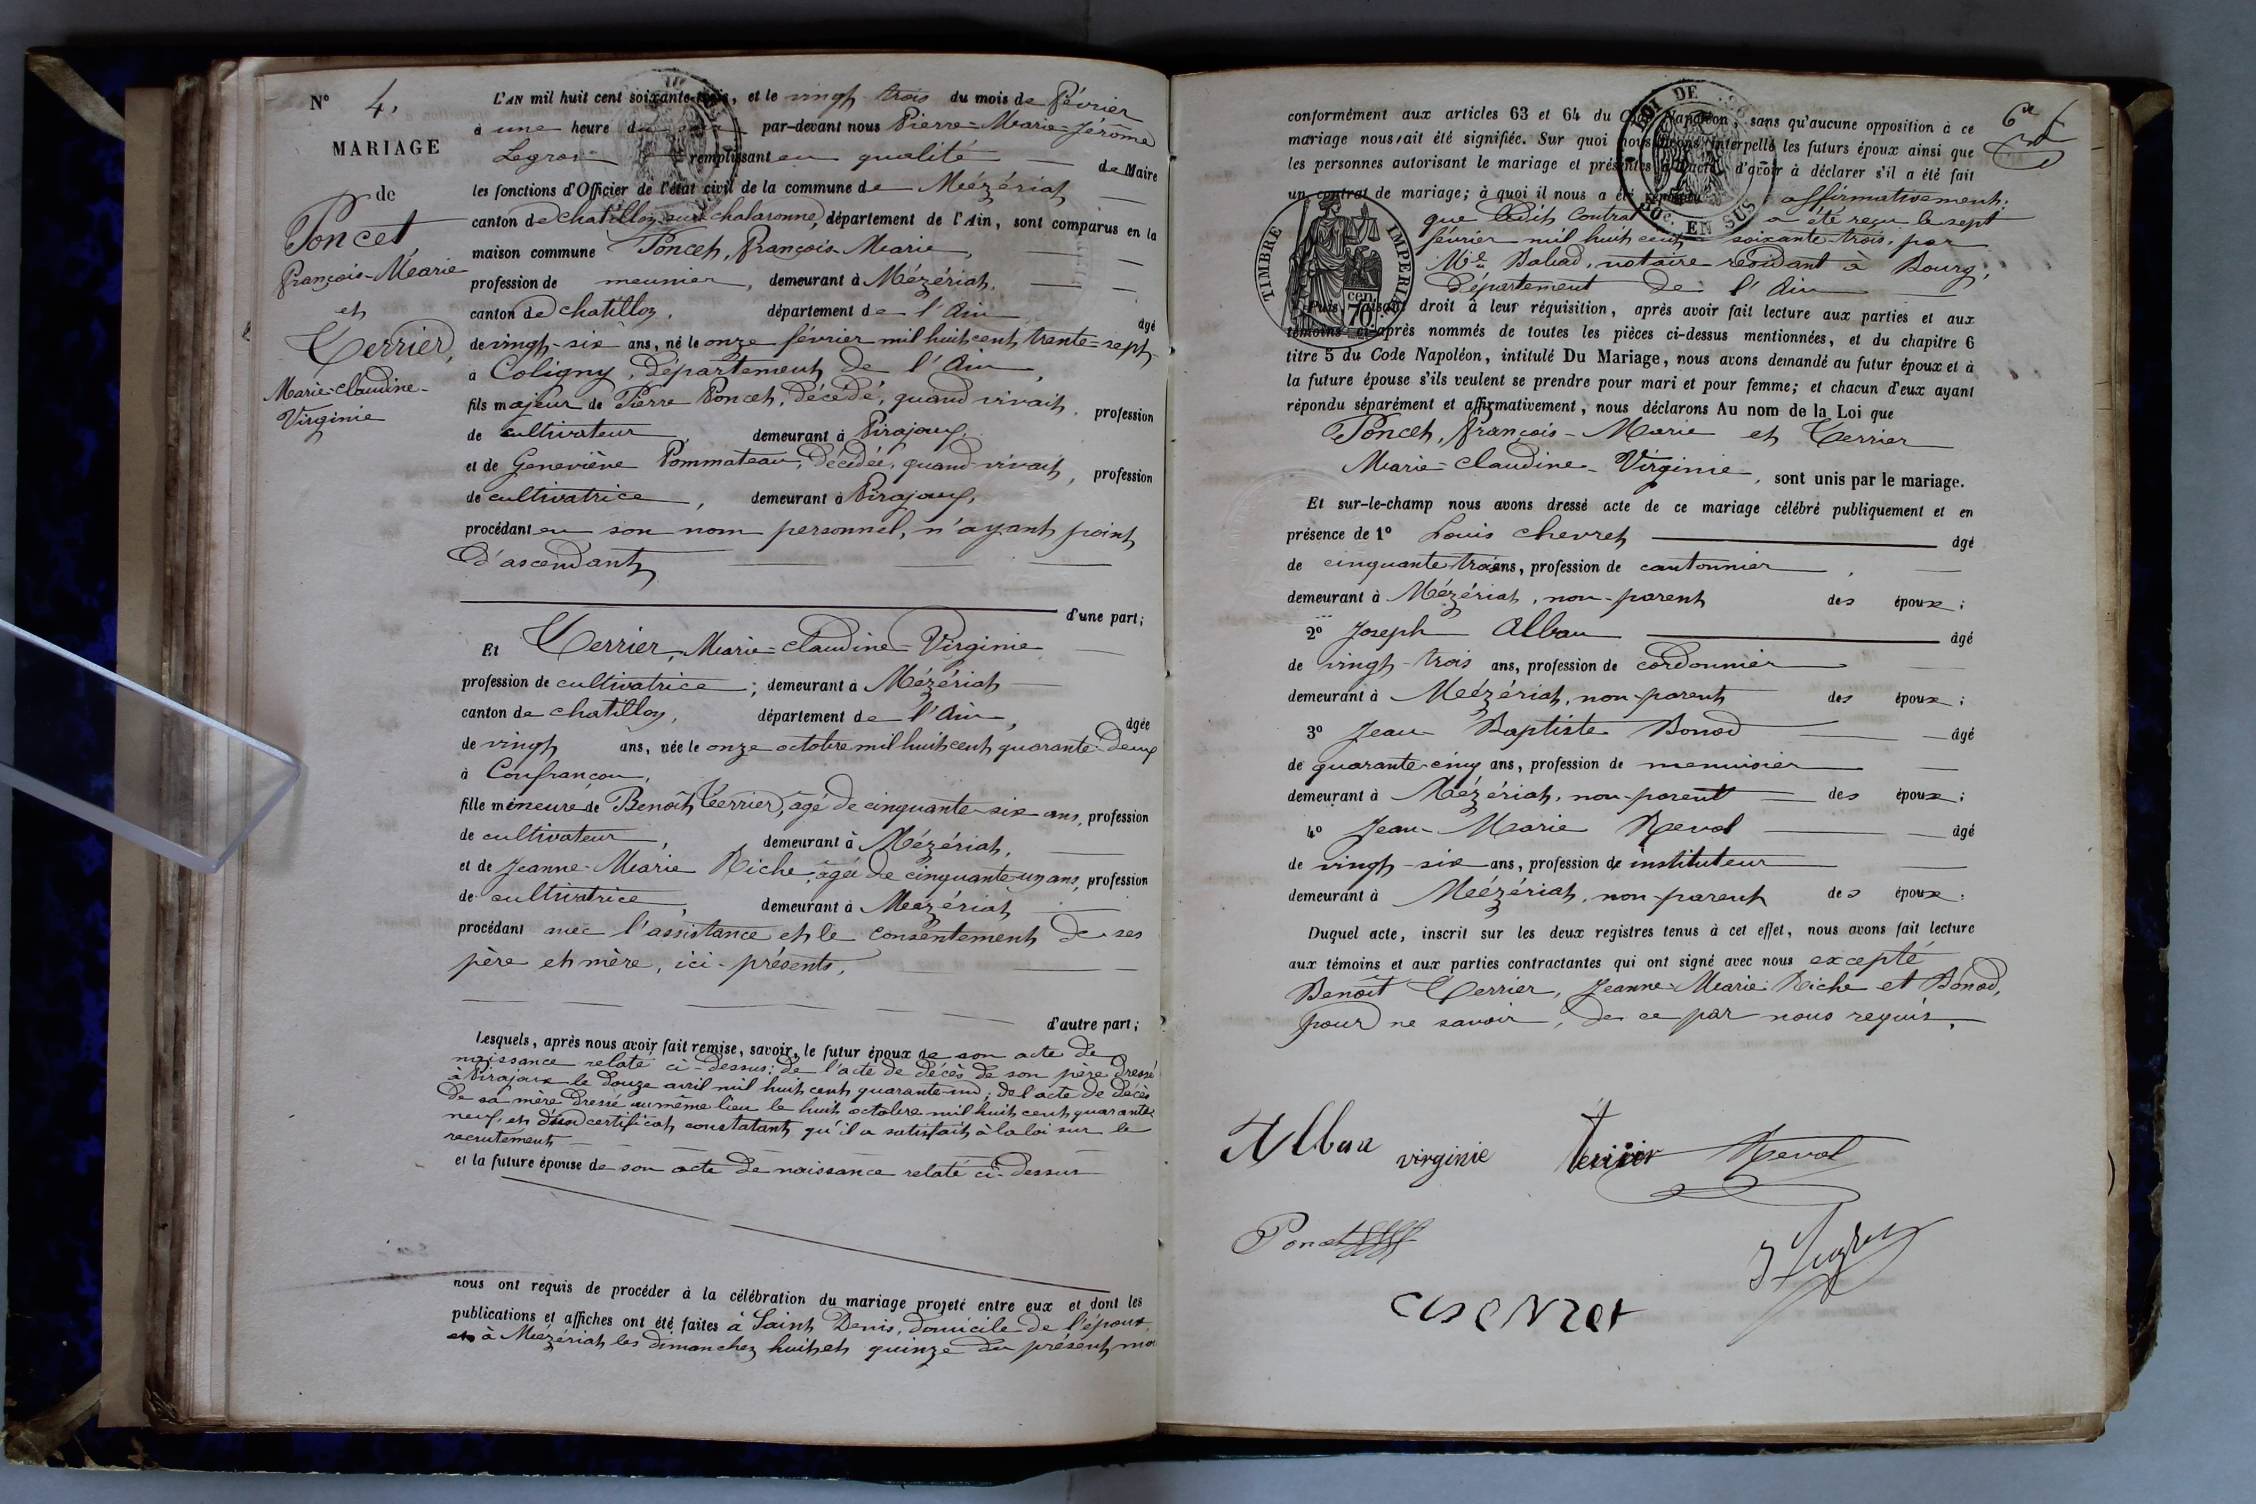 N° 4.
MARIAGE
de
Poncet,
François-Marie
et
Terrier,
Marie-Claudine-
Virginie
L'AN mil huit cent soixante-trois, et le vingt-trois du mois de Février
à une heure du soir par-devant nous Pierre-Marie-Jérôme
Legros remplissant en qualité de Maire
les fonctions d'Officier de l'état civil de la commune de Mézériat
canton de chatillon sur chalaronne, département de l'Ain, sont comparus en la
maison commune Poncet, François-Marie,
profession de meunier, demeurant à Mézériat,
canton de chatillon, département de l'Ain âgé
de vingt-six ans, né le onze février mil huit cent trente-sept
à Coligny, Département de l'Ain,
fils majeur de Pierre Poncet, Décédé, quand vivait, profession
de cultivateur, demeurant à Pirajoux
et de Geneviève Pommateau, Décédée, quand vivait, profession
de cultivatrice, demeurant à Pirajoux,
procédant en son nom personnel, n'ayant point
d'ascendant
d'une part;
Et Terrier, Marie-Claudine-Virginie
profession de cultivatrice; demeurant à Mézériat
canton de chatillon, département de l'Ain, âgée
de vingt ans, née le onze octobre mil huit cent quarante-deux
à Confrançon,
fille mineure de Benoît Terrier, âgé de cinquante-six ans, profession
de cultivateur, demeurant à Mézériat,
et de Jeanne-Marie Riche, âgée de cinquante-un ans, profession
de cultivatrice, demeurant à Mézériat
procédant avec l'assistance et le consentement de ses
père et mère, ici-présents,
d'autre part;
Lesquels, après nous avoir fait remise, savoir, le futur époux de son acte de
naissance relaté ci-dessus; de l'acte de décès de son père dressé
à Pirajoux le douze avril mil huit cent quarante-un; de l'acte de décès
de sa mère dressé au même lieu le huit octobre mil huit cent quarante
neuf, et d'un certificat constatant qu'il a satisfait à la loi sur le
recrutement
et la future épouse de son acte de naissance relaté ci-dessus
nous ont requis de procéder à la célébration du mariage projeté entre eux et dont les
publications et affiches ont été faites à Saint Denis, domicile de l'époux
et à Mézériat les dimanches huit et quinze du présent mois
6e
conformément aux articles 63 et 64 du Code Napoléon, sans qu'aucune opposition à ce
mariage nous ait été signifiée. Sur quoi nous avons interpellé les futurs époux ainsi que
les personnes autorisant le mariage et présentes à l'acte, d'avoir à déclarer s'il a été fait
un contrat de mariage; à quoi il nous a été répondu affirmativement;
que ledit contrat a été reçu le sept
février mil huit cent soixante-trois, par
Me Baliad, notaire résidant à Bourg,
Département de l'Ain
LOI DE
EN SUS
TIMBRE IMPERIAL
70 cen.
Puis, faisant droit à leur réquisition, après avoir fait lecture aux parties et aux
témoins ci-après nommés de toutes les pièces ci-dessus mentionnées, et du chapitre 6
titre 5 du Code Napoléon, intitulé Du Mariage, nous avons demandé au futur époux et à
la future épouse s'ils veulent se prendre pour mari et pour femme; et chacun d'eux ayant
répondu séparément et affirmativement, nous déclarons Au nom de la Loi que
Poncet, François-Marie et Terrier
Marie-Claudine-Virginie, sont unis par le mariage.
Et sur-le-champ nous avons dressé acte de ce mariage célébré publiquement et en
présence de 1° Louis Chevret âgé
de cinquante-trois ans, profession de cantonnier,
demeurant à Mézériat, non-parent des époux;
2° Joseph Alban âgé
de vingt-trois ans, profession de cordonnier
demeurant à Mézériat, non-parent des époux;
3° Jean Baptiste Bonod âgé
de quarante-cinq ans, profession de menuisier
demeurant à Mézériat, non-parent des époux;
4° Jean-Marie Revol âgé
de vingt-six ans, profession de instituteur
demeurant à Mézériat, non-parent des époux.
Duquel acte, inscrit sur les deux registres tenus à cet effet, nous avons fait lecture
aux témoins et aux parties contractantes qui ont signé avec nous excepté
Benoît Terrier, Jeanne-Marie Riche et Bonod,
pour ne savoir, de ce par nous requis.
Alban virginie terrier Revol
Poncet
J Legros
chevret